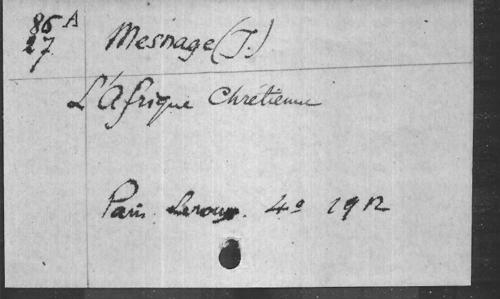 86 A
27
Mesnage (J.)
L'Afrique Chrétienne
Paris. Leroux. 4º 1912